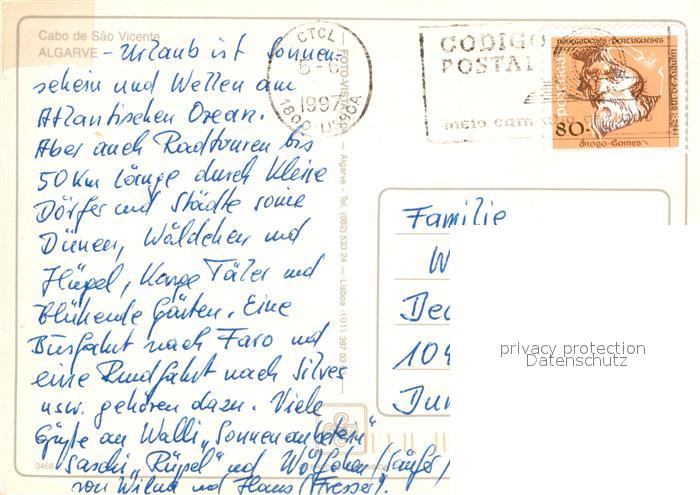 Cabo de São Vicente
ALGARVE – Urlaub ist Sonnen-
schein und Wellen am
Atlantischen Ozean.
Aber auch Radtouren bis
50 Km Länge durch kleine
Dörfer und Städte sowie
Dünen, Wäldchen und
Hügel, Karge Täler und
blühende Gärten. Eine
Busfahrt nach Faro und
eine Rundfahrt nach Silves
usw. gehören dazu. Viele
Grüße an Walli „Sonnenanbeterin"
Saschi „Rüpel" und Wölfchen (Säufer)
von Wilma und Hans (Fresser).
3468
CTCL
5-6
1997
1800 LISBOA
CODIGO
POSTAL
meio cam
NAVEGADORES PORTUGUESES
80.-
Diogo Gomes
FOTO-VISTA
Algarve - Tel. (082) 533 24 — Lisboa - (01) 397 03
Familie
W
De
104
Du
privacy protection
Datenschutz